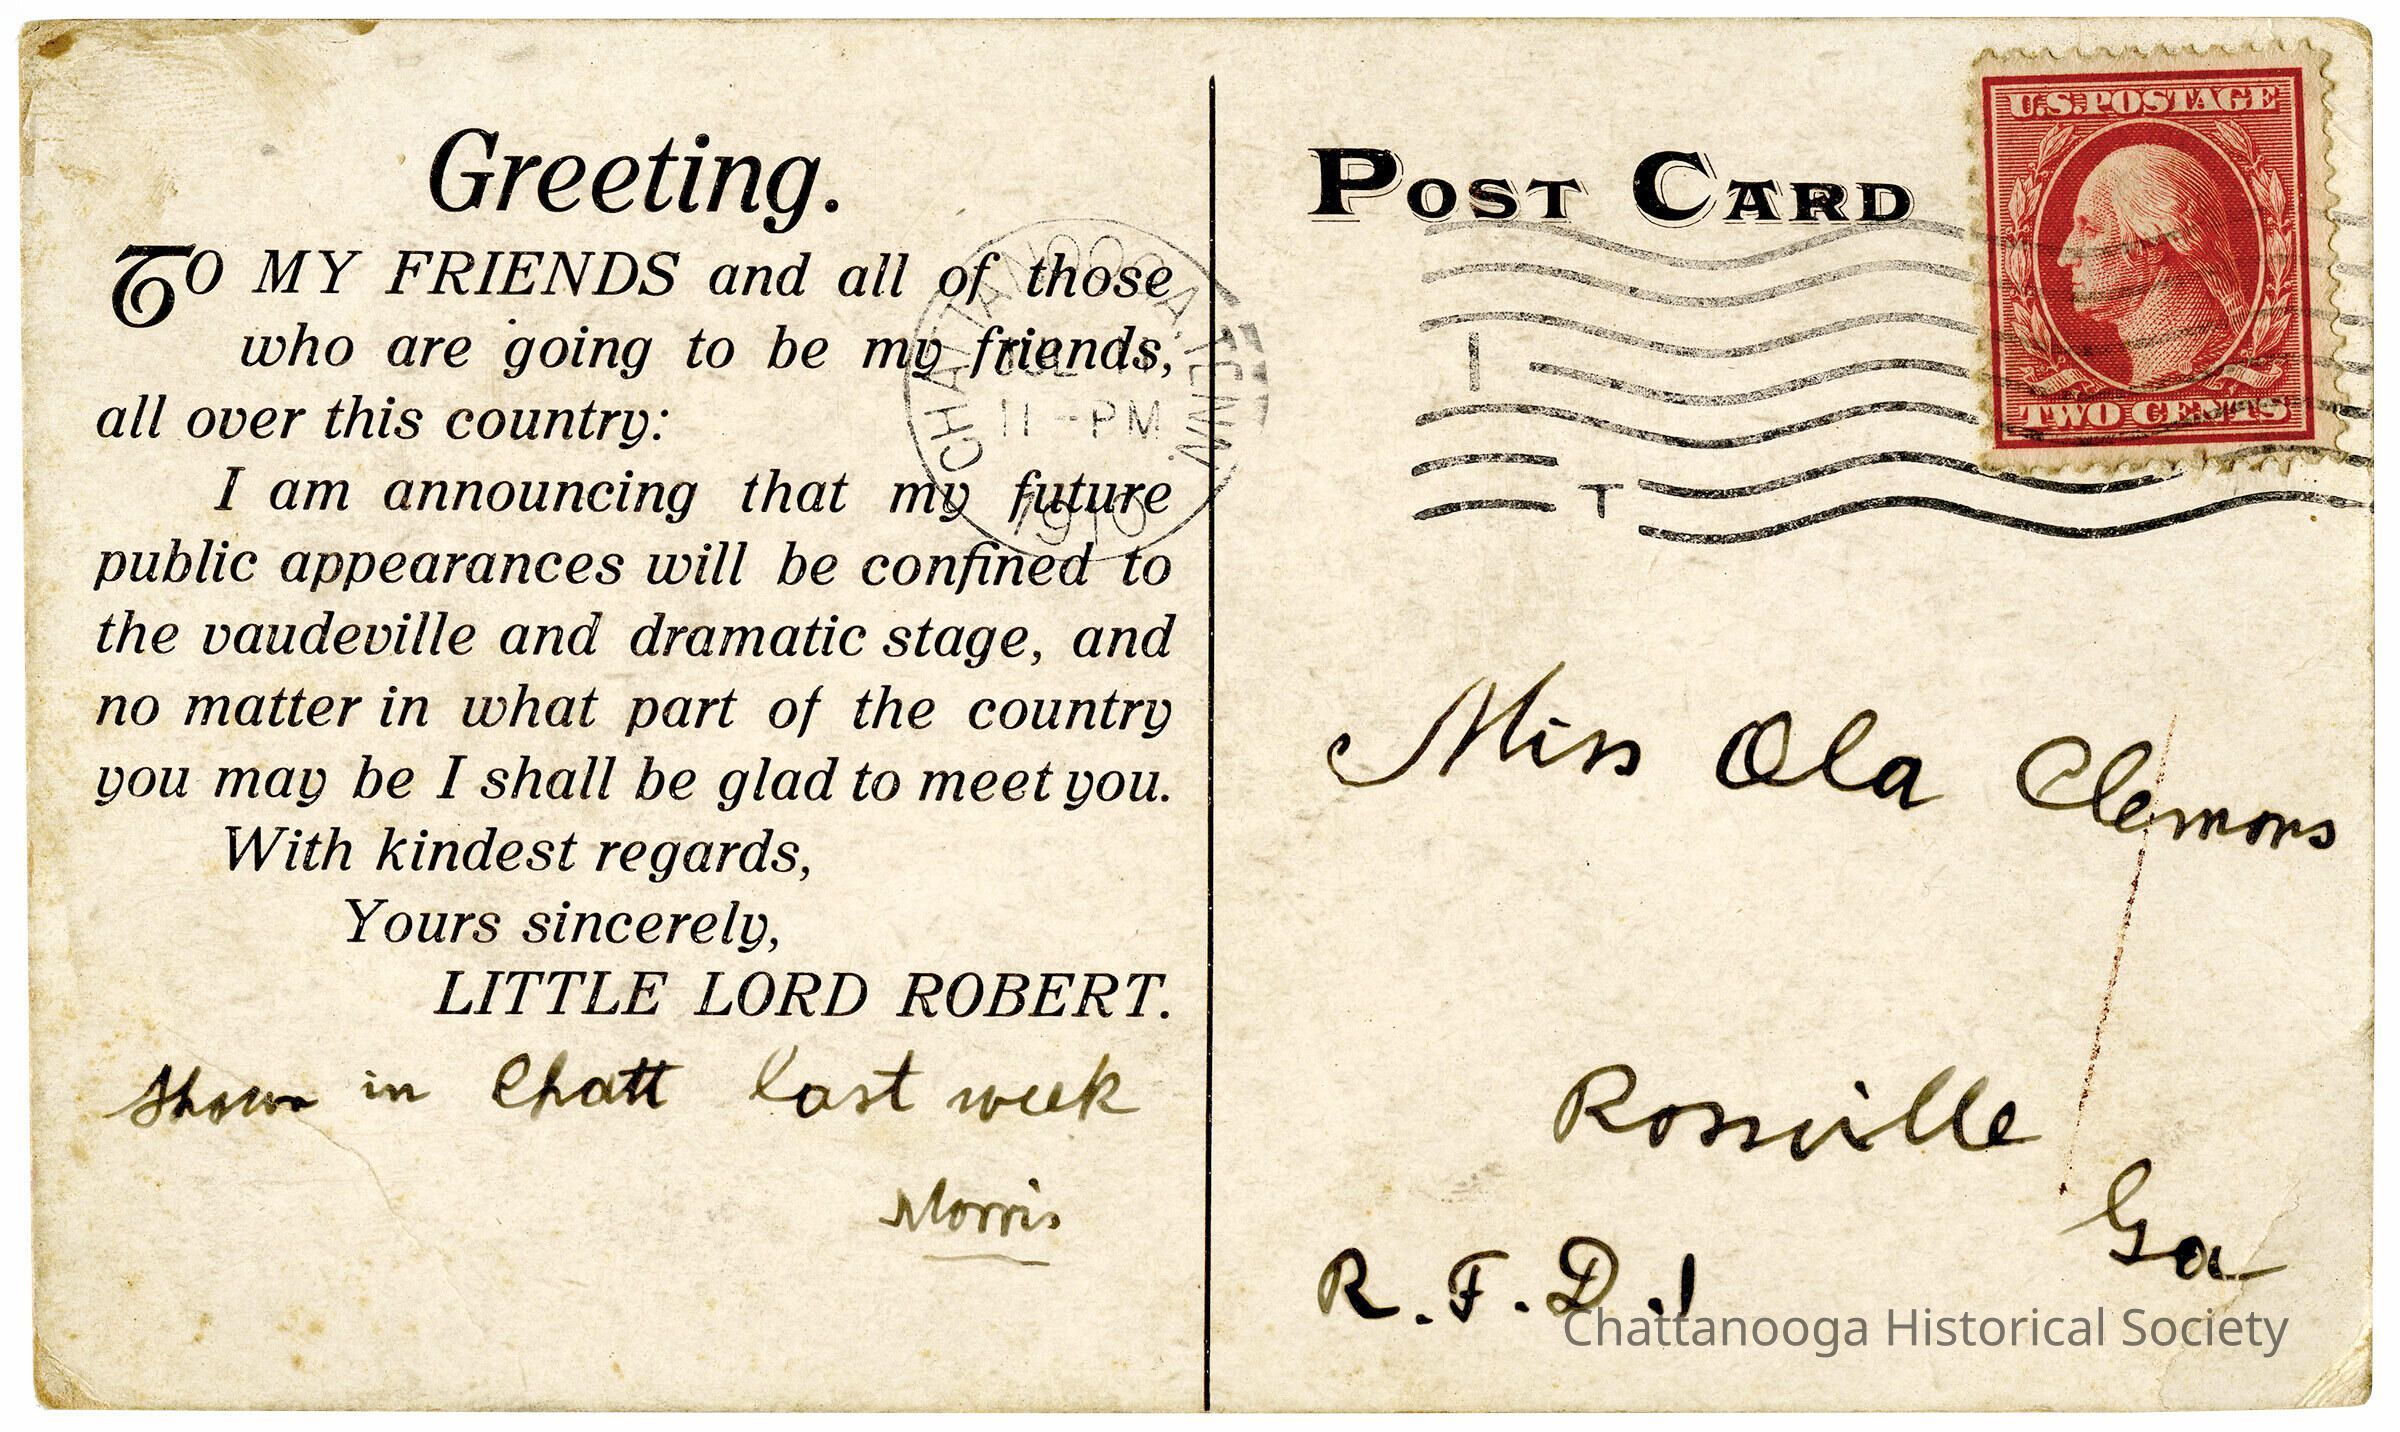 Greeting.
TO MY FRIENDS and all of those
who are going to be my friends,
all over this country:
I am announcing that my future
public appearances will be confined to
the vaudeville and dramatic stage, and
no matter in what part of the country
you may be I shall be glad to meet you.
With kindest regards,
Yours sincerely,
LITTLE LORD ROBERT.
Shown in Chatt last week
Morris
CHATTANOOGA, TENN.
11 - PM
1910
POST CARD
U.S. POSTAGE
TWO CENTS
I
T
Miss Ola Clemons
Rossville
Ga
R. F. D. 1
Chattanooga Historical Society